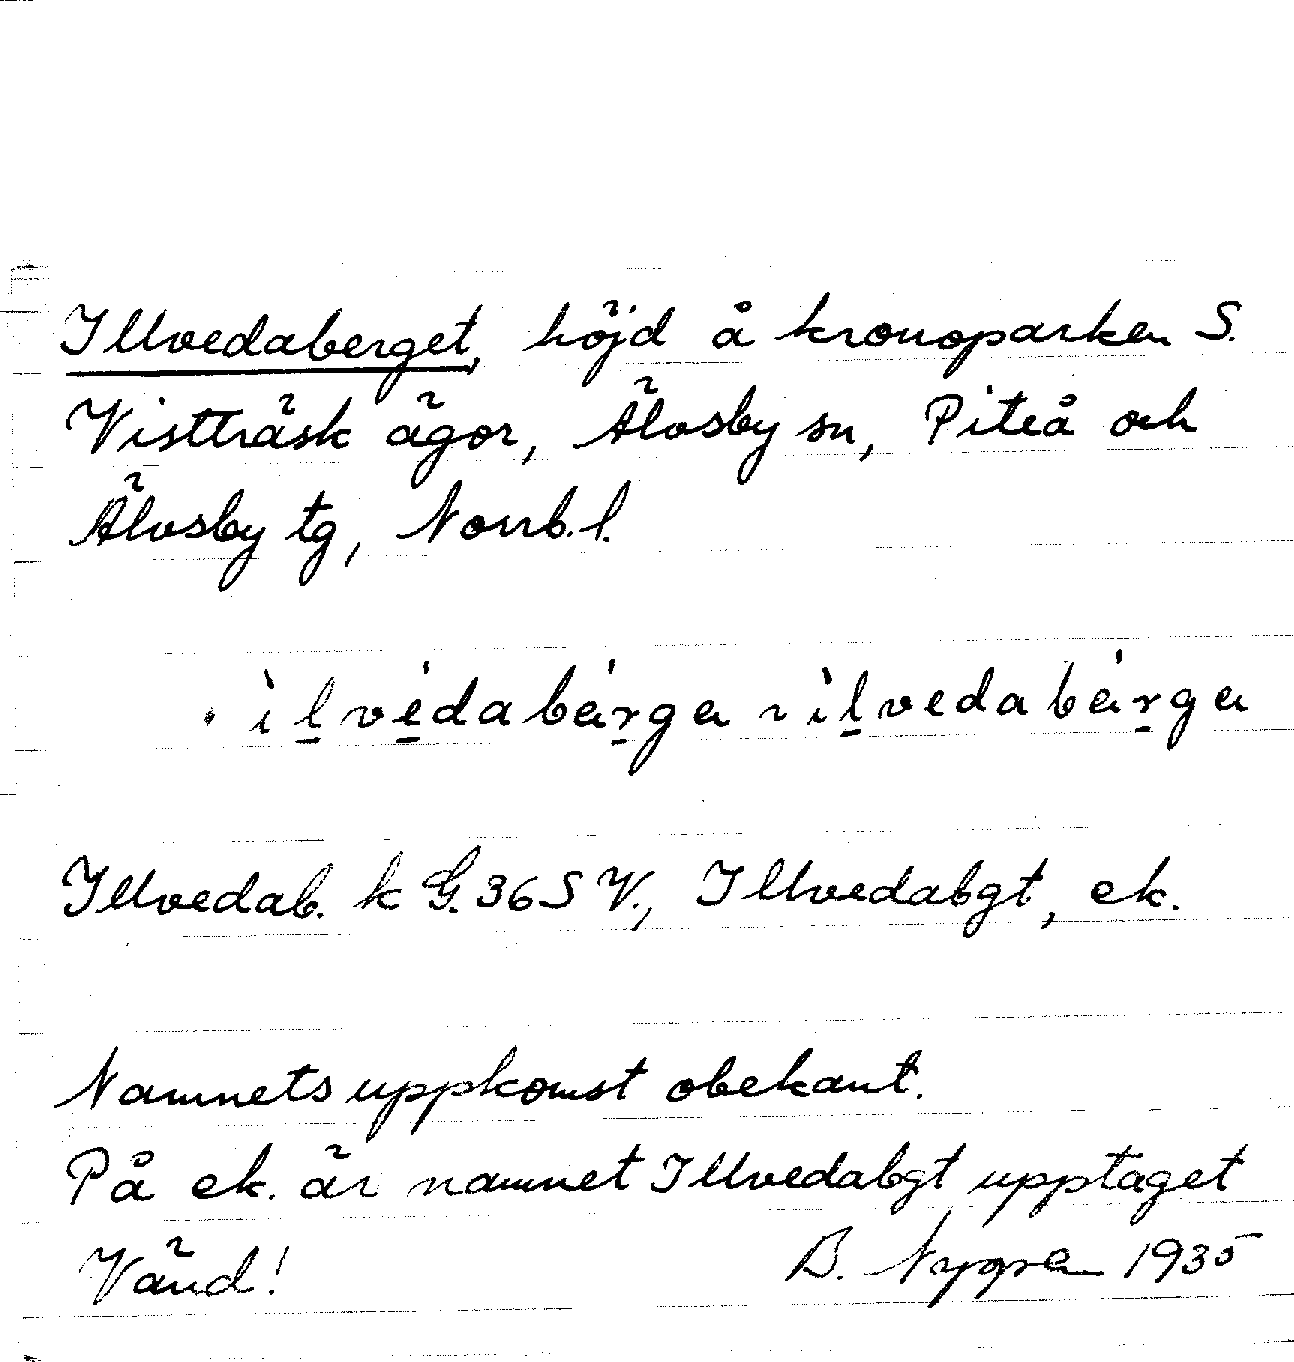 Illvedaberget, höjd å kronoparken S.
Vistträsk ägor, Älvsby sn, Piteå och
Älvsby tg, Norrb. l.
ìl̠vé̠dabár̠ga ~ ìl̠vedabár̠ga
Illvedab. k G. 36 S V., Illvedabgt, ek.
Namnets uppkomst obekant.
På ek. är namnet Illvedabgt upptaget
Vänd! B. Nygren 1935